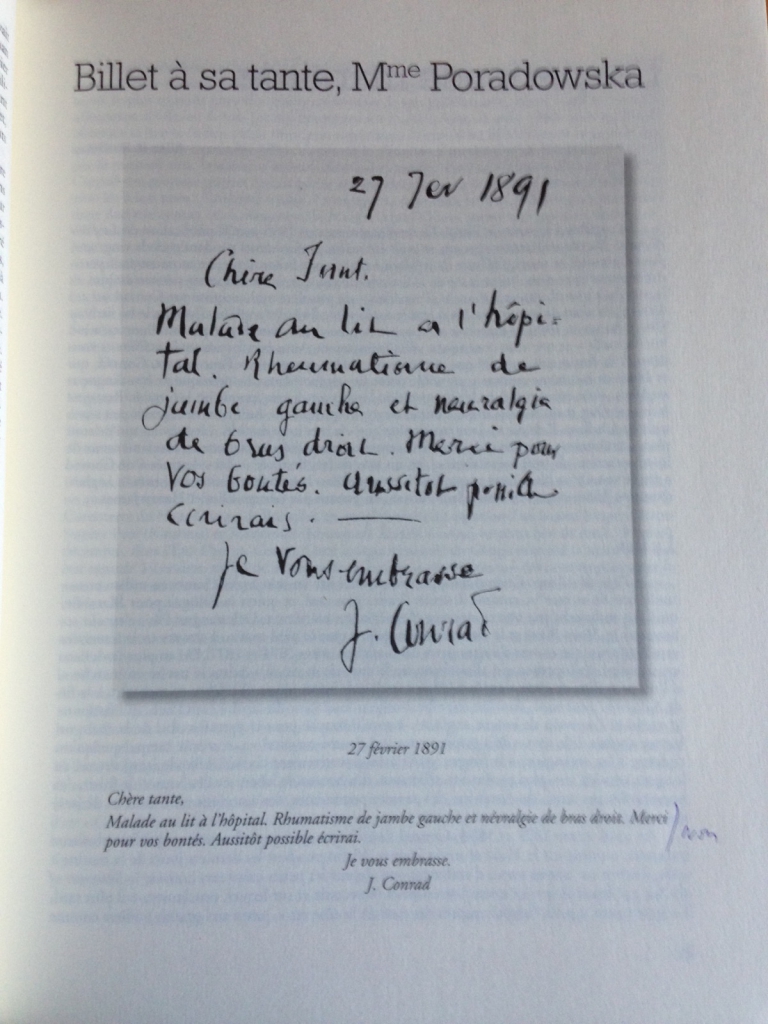 Billet à sa tante, Mme Poradowska
27 Fev 1891
Chère Tant.
Malade au lit a l'hôpi-
tal. Rheumatisme de
jambe gauche et neuralgie
de bras droit. Merci pour
vos bontés. Aussitot possible
ecrirais. —
Je vous embrasse
J. Conrad
27 février 1891
Chère tante,
Malade au lit à l'hôpital. Rhumatisme de jambe gauche et névralgie de bras droit. Merci
pour vos bontés. Aussitôt possible écrirai.
Je vous embrasse.
J. Conrad